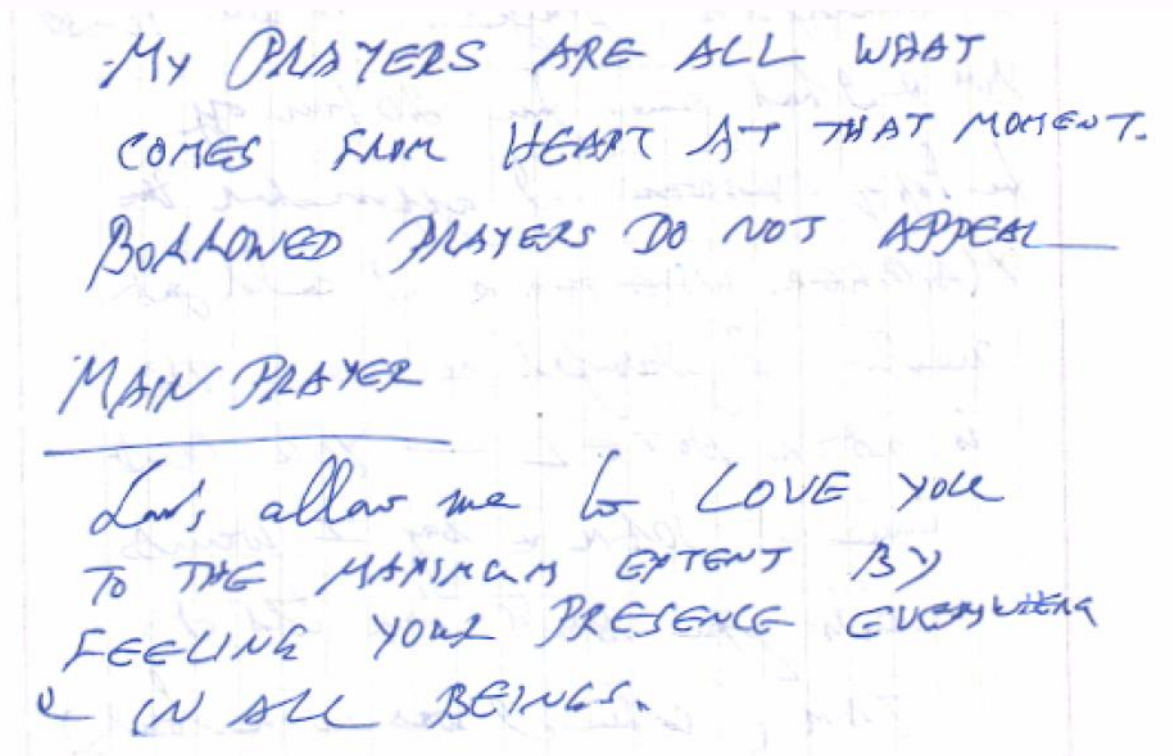 My PRAYERS ARE ALL WHAT
COMES FROM HEART AT THAT MOMENT.
BORROWED PRAYERS DO NOT APPEAL
MAIN PRAYER
Lord, allow me to LOVE YOU
TO THE MAXIMUM EXTENT BY
FEELING YOUR PRESENCE EVERYWHERE
& IN ALL BEINGS.